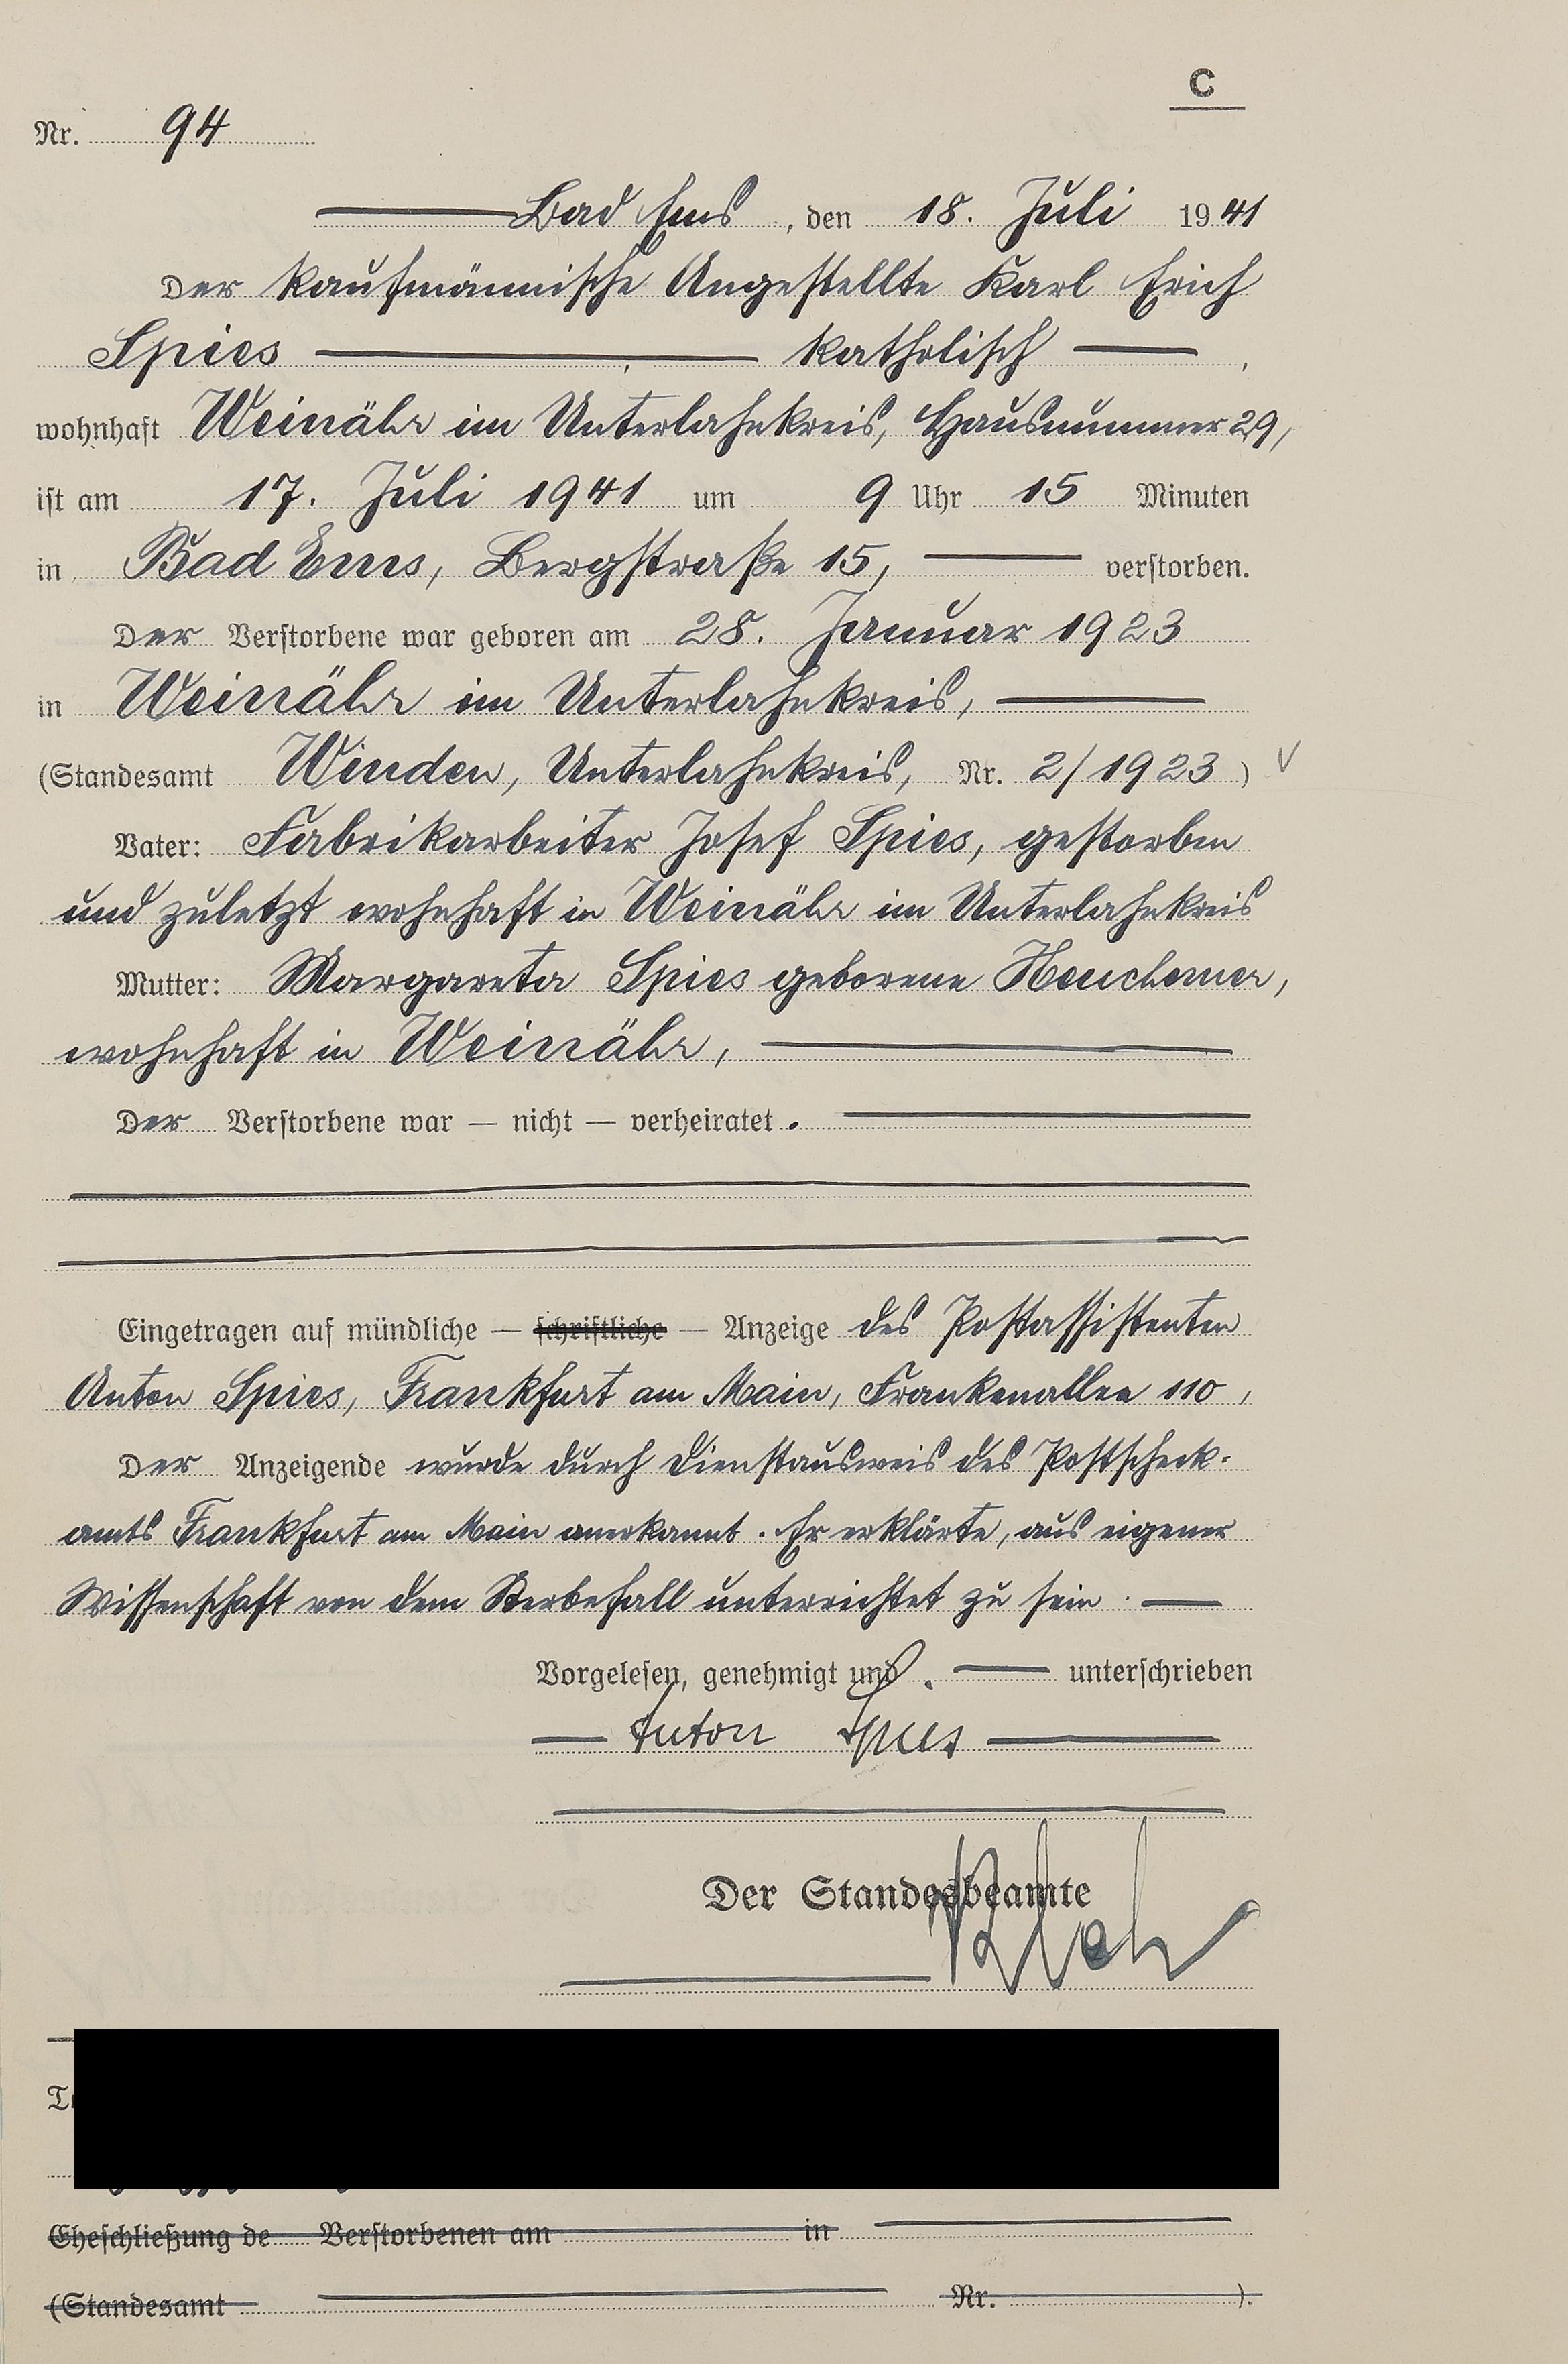 C
Nr. 94
Bad Ems, den 18. Juli 1941
Der kaufmännische Angestellte Karl Erich
Spies katholisch,
wohnhaft Weinähr im Unterlahnkreis, Hausnummer 29,
ist am 17. Juli 1941 um 9 Uhr 15 Minuten
in Bad Ems, Bergstraße 15, verstorben.
Der Verstorbene war geboren am 28. Januar 1923
in Weinähr im Unterlahnkreis,
(Standesamt Winden, Unterlahnkreis, Nr. 2/1923)
Vater: Fabrikarbeiter Josef Spies, gestorben
und zuletzt wohnhaft in Weinähr im Unterlahnkreis
Mutter: Margareta Spies geborene Heuchemer,
wohnhaft in Weinähr,
Der Verstorbene war — nicht — verheiratet.
Eingetragen auf mündliche — schriftliche — Anzeige des Postassistenten
Anton Spies, Frankfurt am Main, Frankenallee 110,
Der Anzeigende wurde durch Dienstausweis des Postscheck-
amts Frankfurt am Main anerkannt. Er erklärte, aus eigener
Wissenschaft von dem Sterbefall unterrichtet zu sein.
Vorgelesen, genehmigt und unterschrieben
Anton Spies
Der Standesbeamte
Eheschließung de Verstorbenen am in
(Standesamt Nr. ).